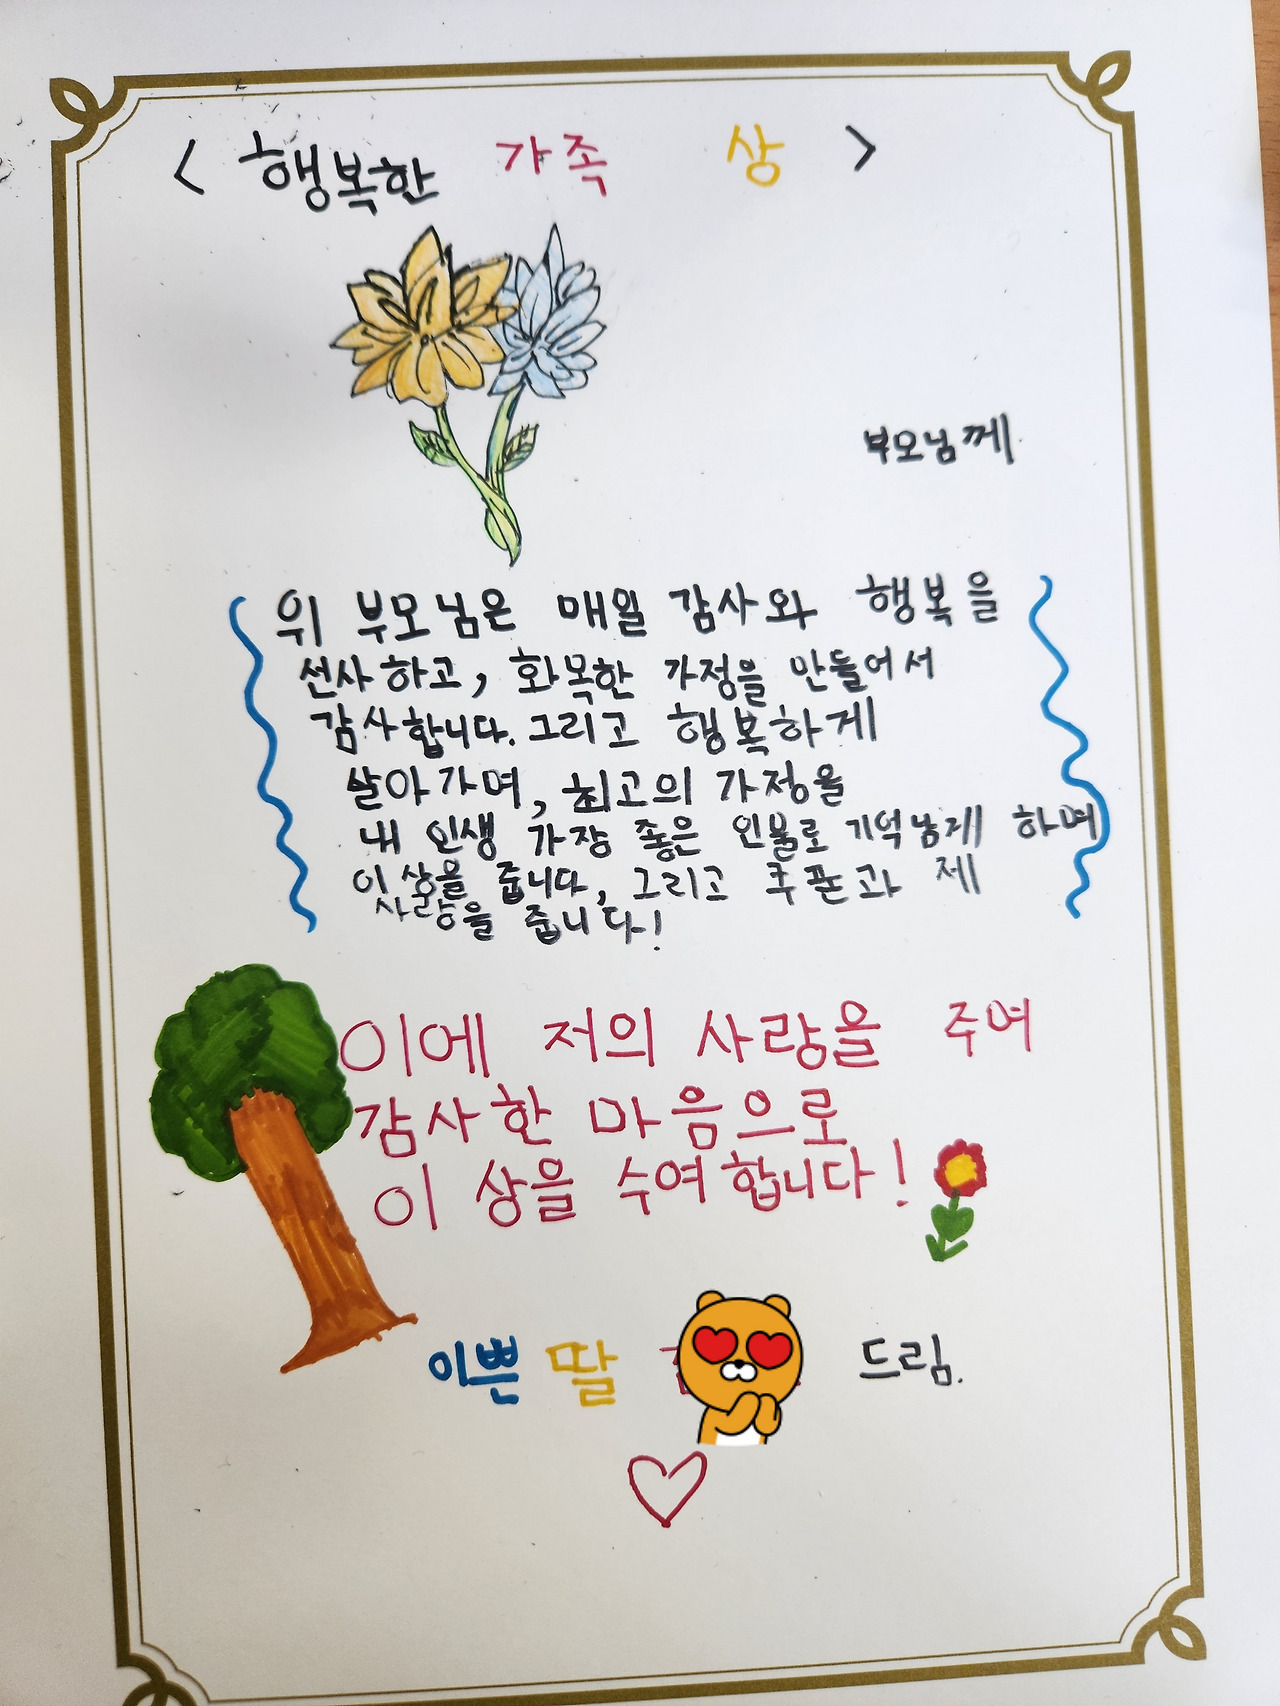 < 행복한 가족 상 >
부모님께
위 부모님은 매일 감사와 행복을
선사하고, 화목한 가정을 만들어서
감사합니다. 그리고 행복하게
살아가며, 최고의 가정을
내 인생 가장 좋은 인물로 기억남게 하며
이 상을 줍니다, 그리고 쿠폰과 제
사랑을 줍니다!
이에 저의 사랑을 주여
감사한 마음으로
이 상을 수여합니다!
이쁜 딸 드림.